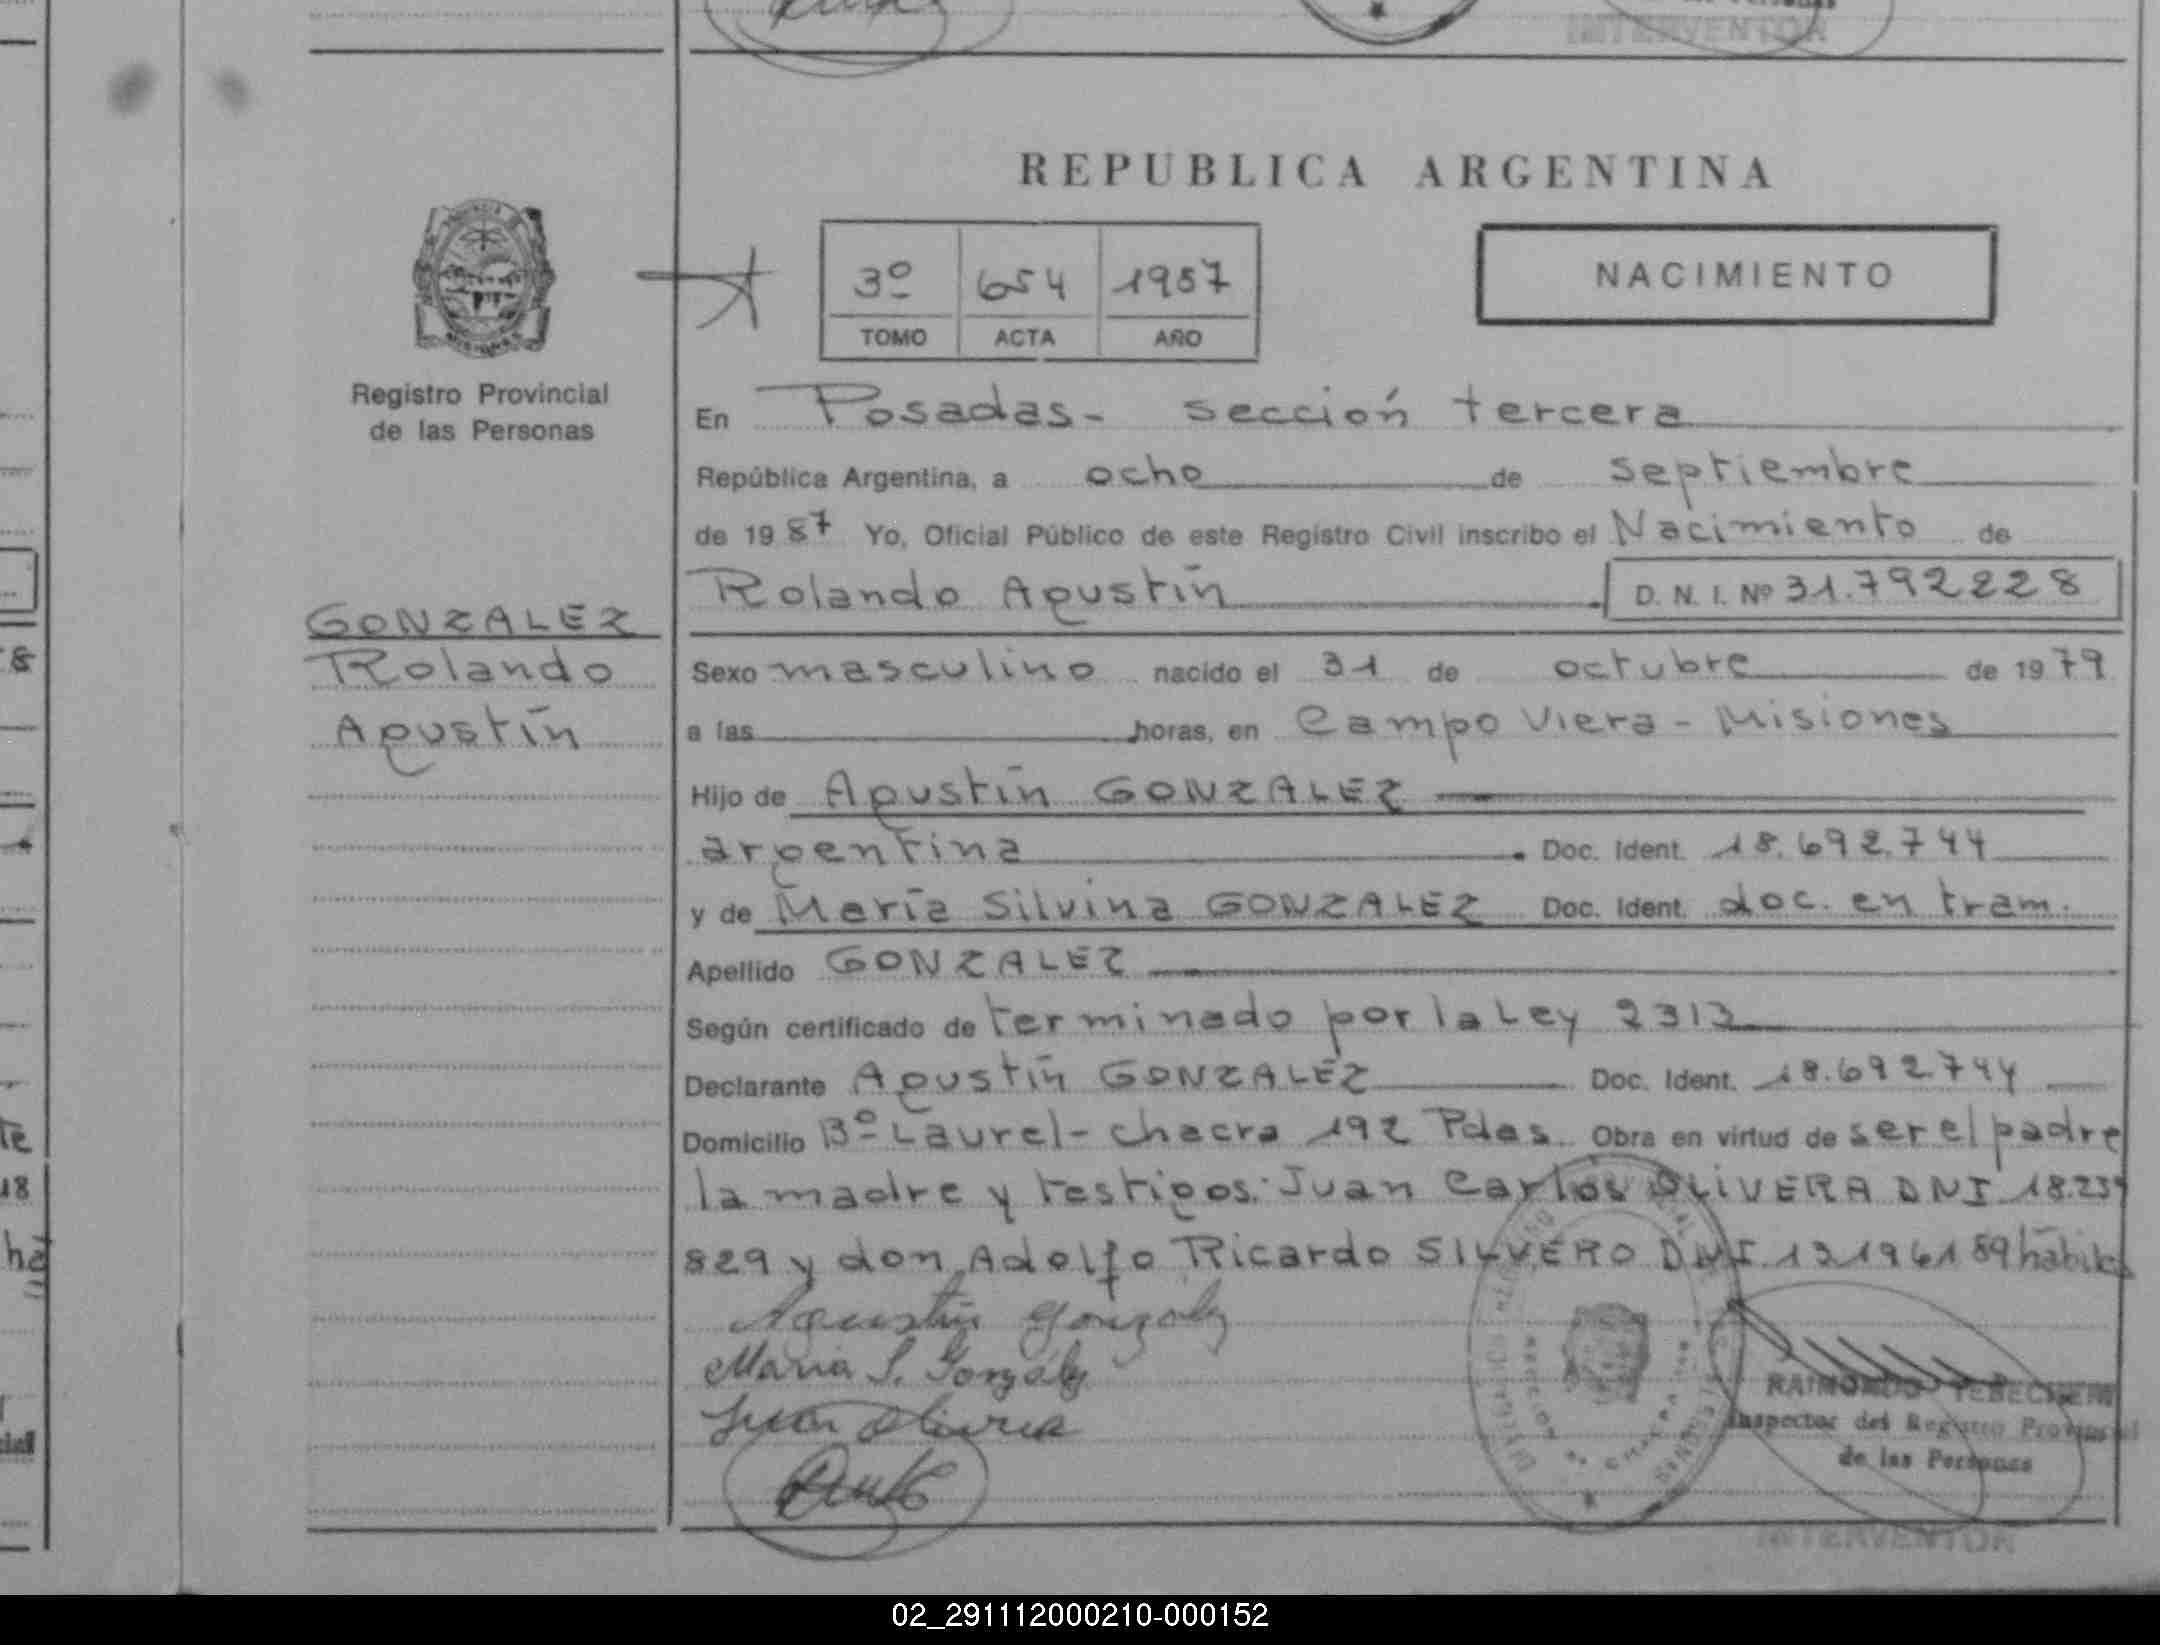 INTERVENTOR
REPUBLICA ARGENTINA
3º 654 1987
TOMO ACTA AÑO
NACIMIENTO
Registro Provincial
de las Personas
En Posadas- sección tercera
República Argentina, a ocho de septiembre
de 1987 Yo, Oficial Público de este Registro Civil inscribo el Nacimiento de
Rolando Agustín D. N. I. Nº 31.792228
GONZALEZ
Rolando
Agustín
Sexo masculino nacido el 31 de octubre de 1979
a las horas, en Campo Viera - Misiones
Hijo de Agustín GONZALEZ
argentina Doc. Ident. 18.692.744
y de María Silvina GONZALEZ Doc. Ident. doc. en tram.
Apellido GONZALEZ
Según certificado de terminado por la Ley 2313
Declarante Agustín GONZALEZ Doc. Ident. 18.692.744
Domicilio Bº Laurel - chacra 192 Pdas. Obra en virtud de ser el padre
la madre y testigos: Juan Carlos OLIVERA DNI 18.239
829 y don Adolfo Ricardo SILVERO DNI 13196189 hábiles
Agustín González
Maria S. González
Juan Olivera
RAIMUNDO
Inspector del Registro Provincial
de las Personas
INTERVENTOR
02_291112000210-000152